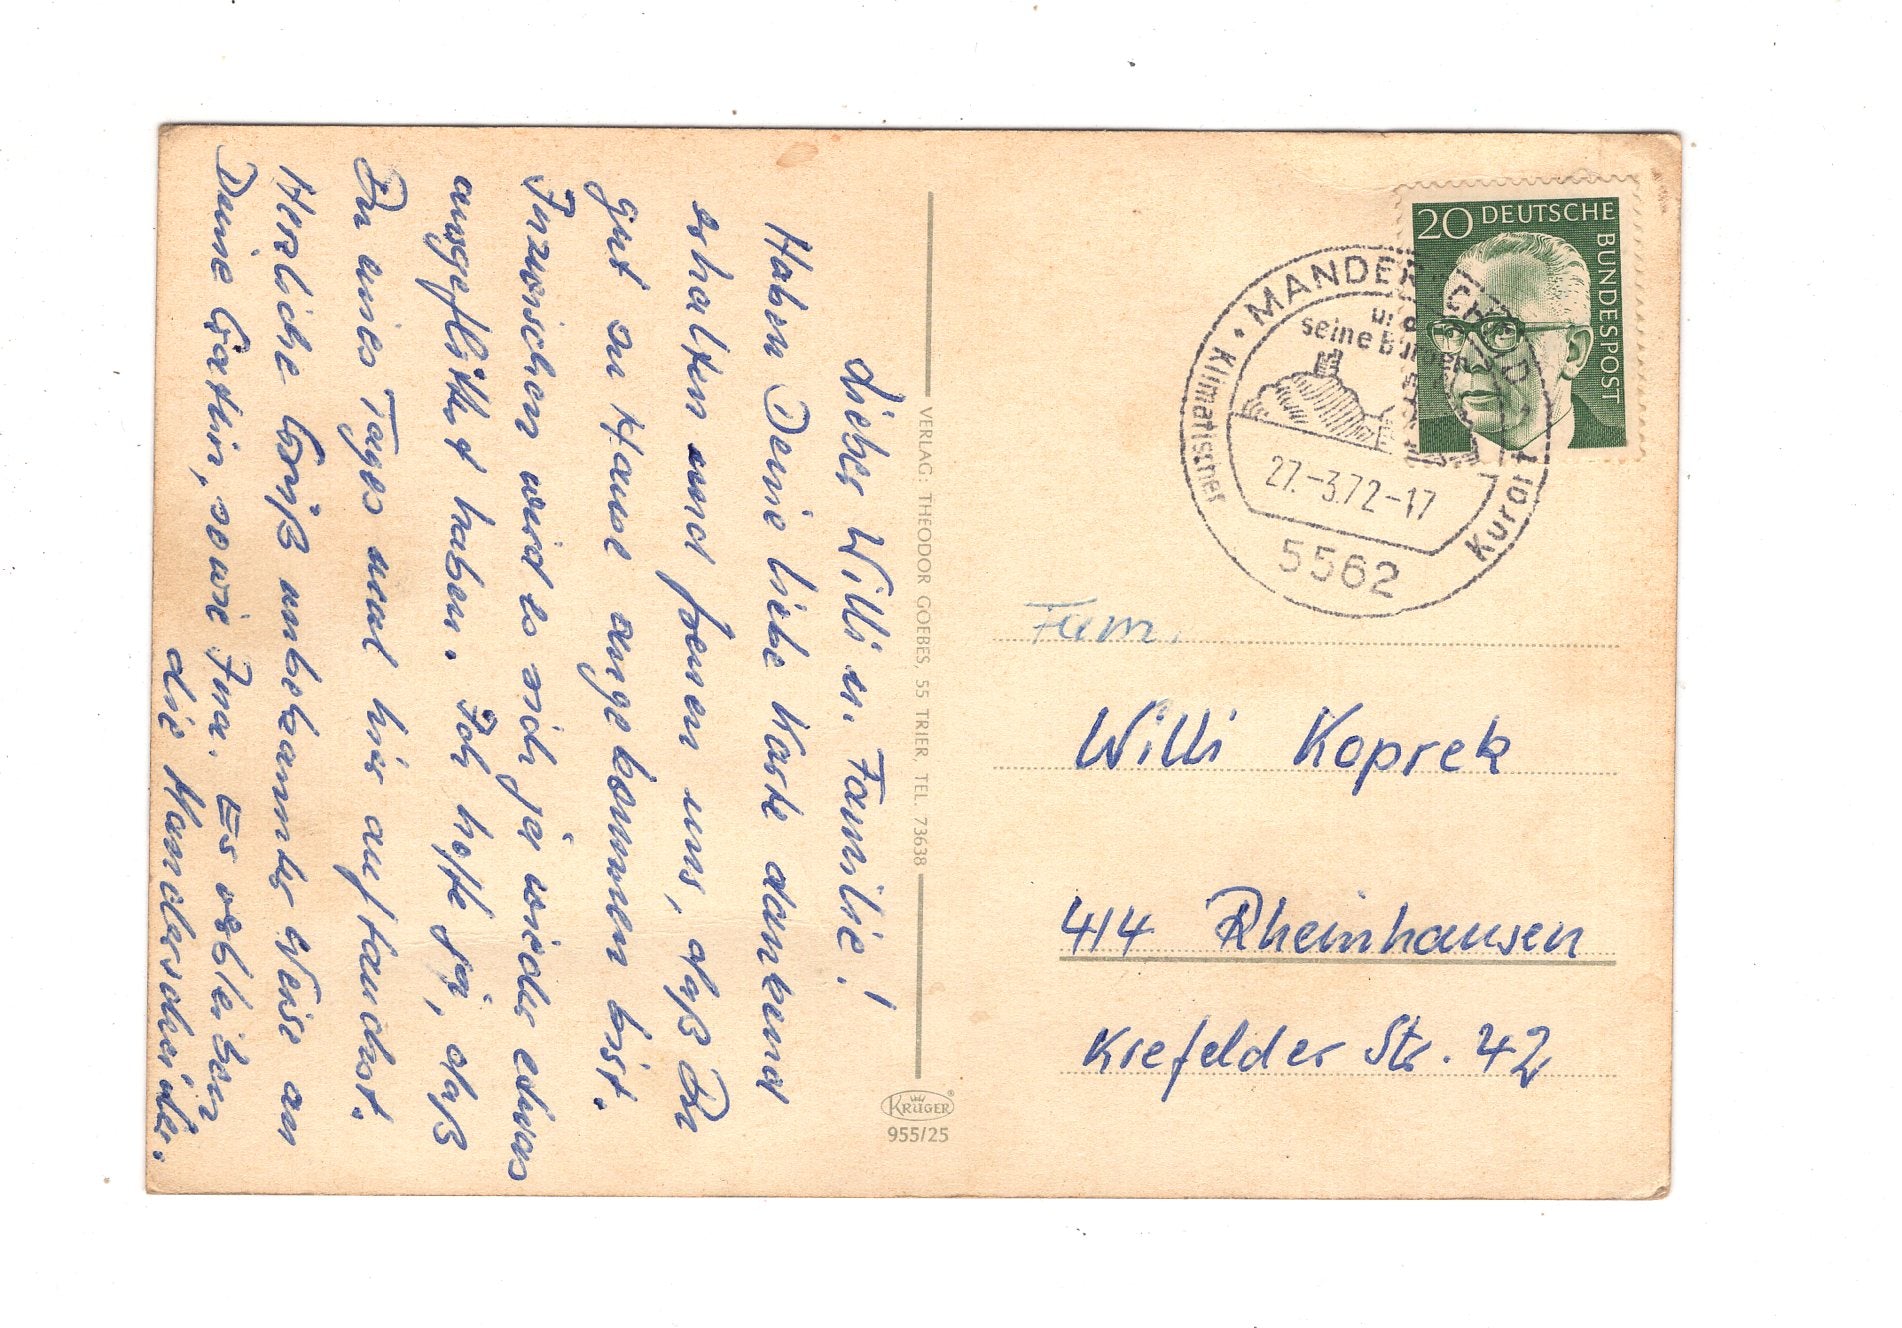 Lieber Willi u. Familie!
Haben Deine liebe Karte dankend
erhalten und freuen uns, daß Du
gut zu Hause angekommen bist.
Inzwischen wird es sich ja wieder etwas
ausgeflittert haben. Ich hoffe ja, daß
Du eines Tages mal hier auftauchst.
Herzliche Grüß unbekannter Weise an
Deine Gattin, sowie Ina. Es verbleiben
die Manderscheider.
VERLAG: THEODOR GOEBES, 55 TRIER, TEL. 73638
KRÜGER
955/25
20 DEUTSCHE BUNDESPOST
MANDERSCHEID
und
seine Burgen
Klimatischer Kurort
27.-3.72-17
5562
Fam.
Willi Koprek
414 Rheinhausen
Krefelder Str. 42